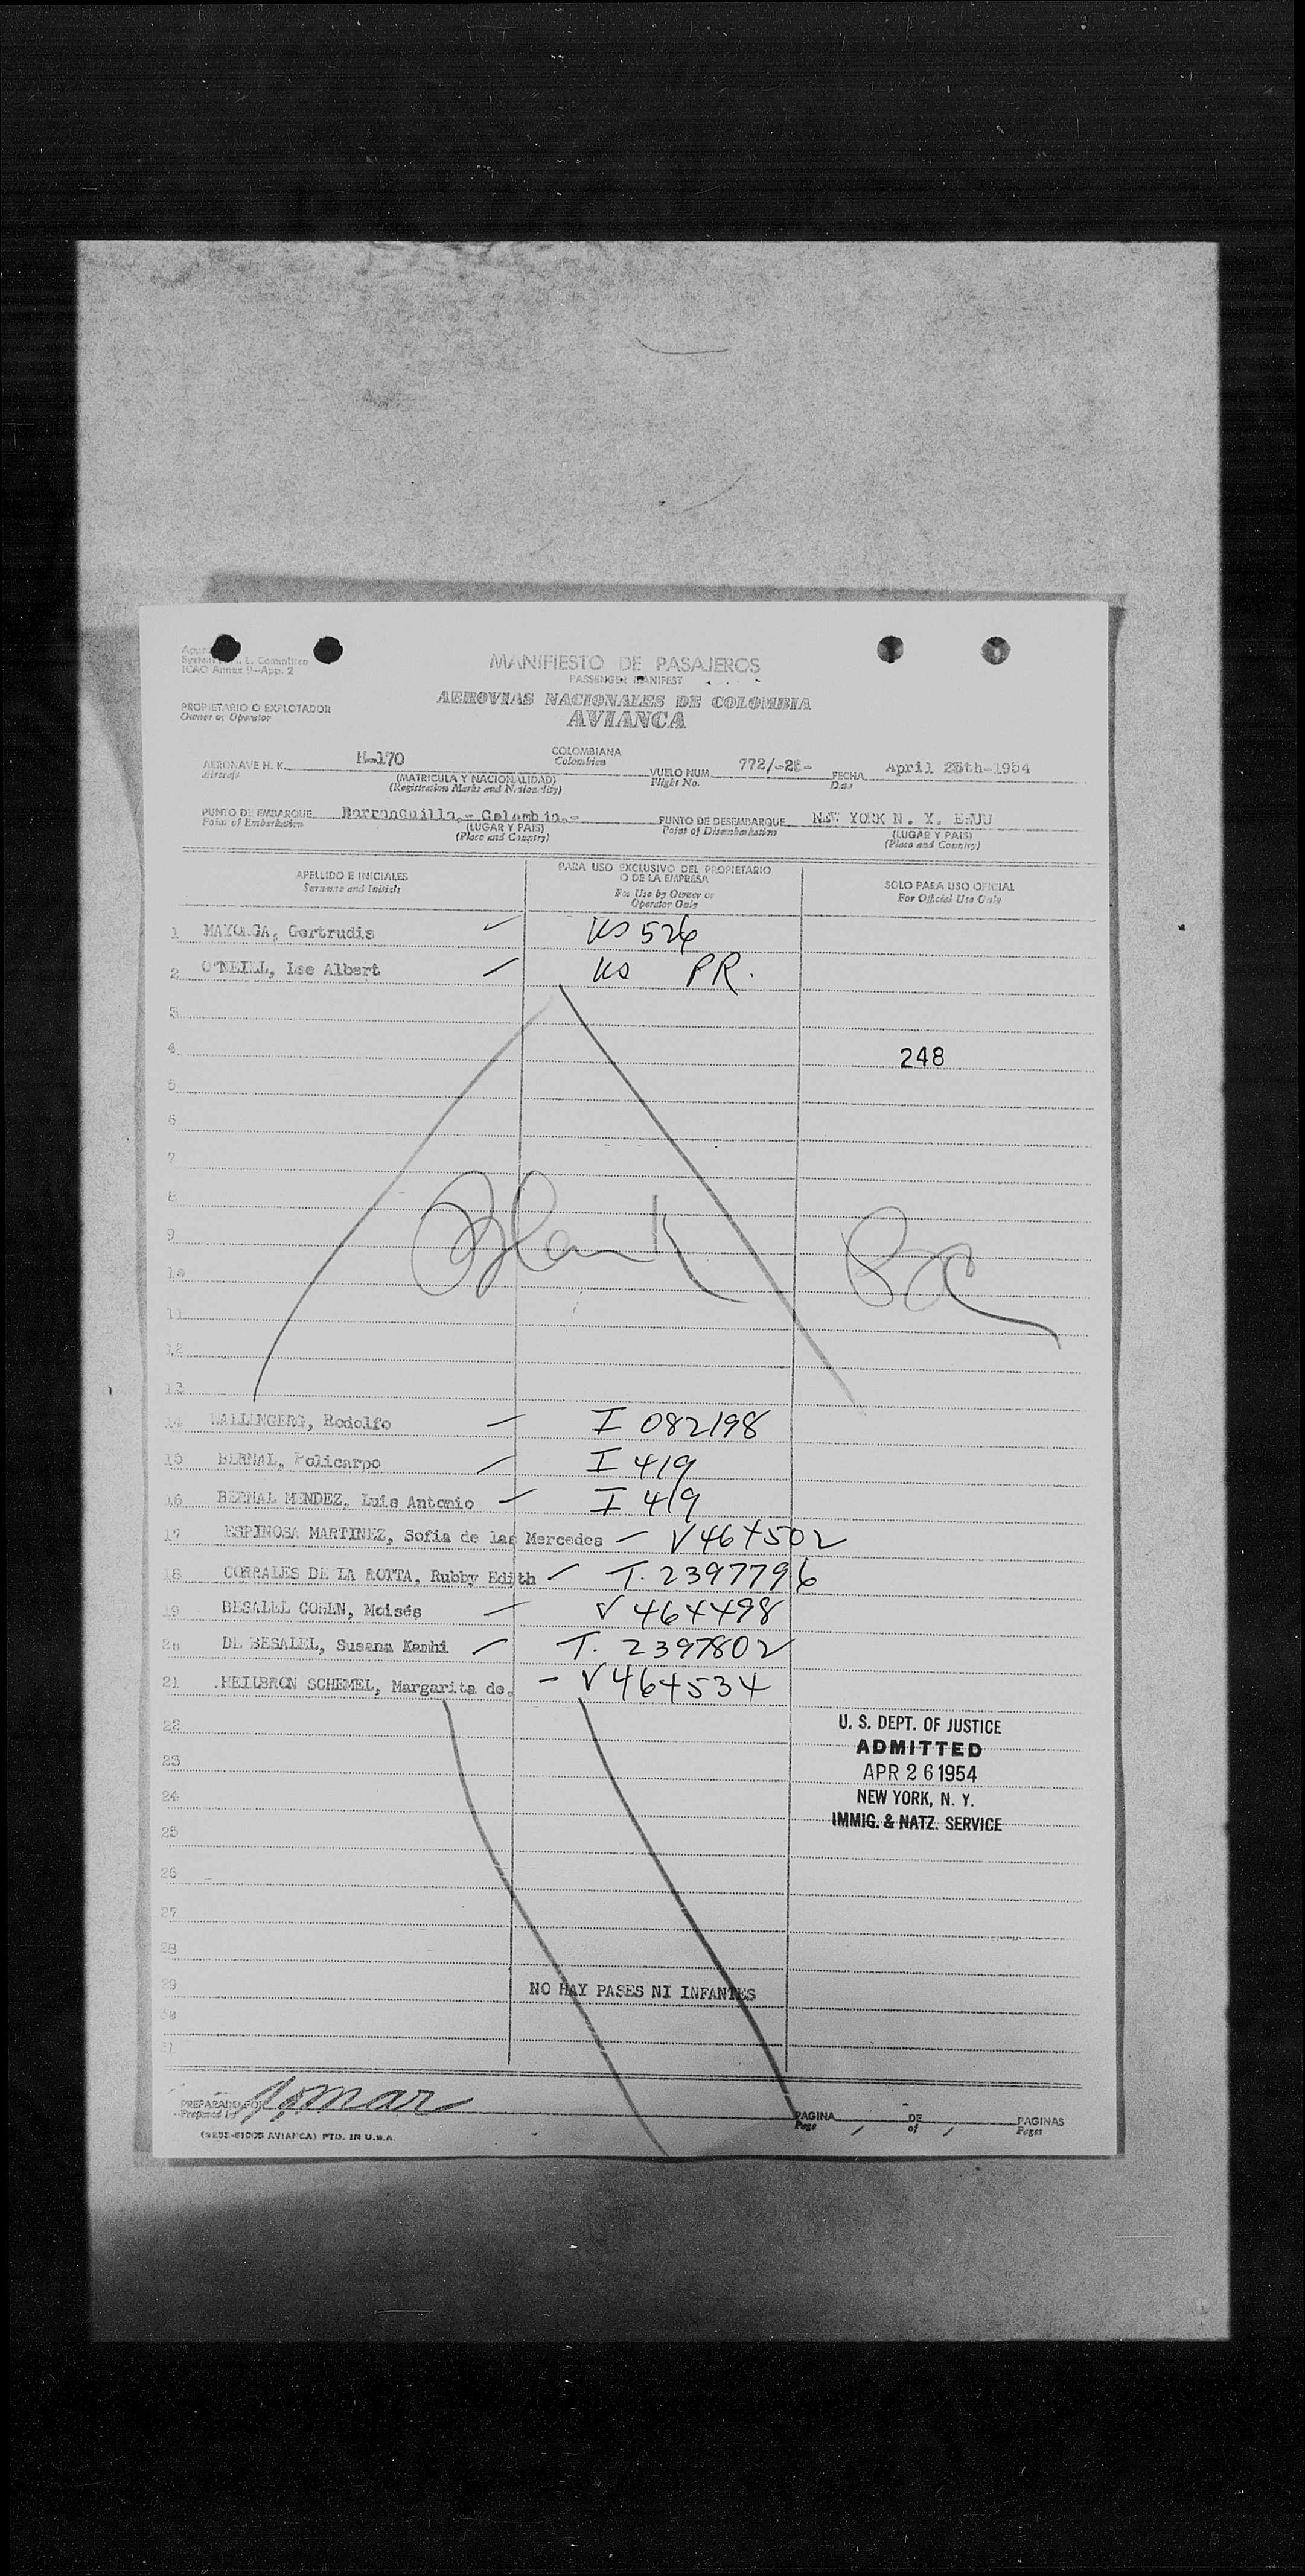 ICAO Annex 9-App. 2
MANIFIESTO DE PASAJEROS
PASSENGER MANIFEST
AEROVIAS NACIONALES DE COLOMBIA
AVIANCA
PROPIETARIO O EXPLOTADOR
Owner or Operator
AERONAVE H. K. H-170 COLOMBIANA VUELO NUM. 772/-26- FECHA April 25th-1954
Aircraft (MATRICULA Y NACIONALIDAD) Colombian Flight No. Date
(Registration Marks and Nationality)
PUNTO DE EMBARQUE Barranquilla,- Colombia.- PUNTO DE DESEMBARQUE NEW YORK N. Y. EEUU
Point of Embarkation (LUGAR Y PAIS) Point of Disembarkation (LUGAR Y PAIS)
(Place and Country) (Place and Country)
APELLIDO E INICIALES PARA USO EXCLUSIVO DEL PROPIETARIO O DE LA EMPRESA SOLO PARA USO OFICIAL
Surname and Initials For Use by Owner or Operator Only For Official Use Only
1 MAYORGA, Gertrudis US 526
2 O'NEILL, Lee Albert US PR.
3
4 248
5
6
7
8
9 Blank BC
10
11
12
13
14 WALLENGERG, Rodolfo I 082198
15 BERNAL, Policarpo I 419
16 BERNAL MENDEZ, Luis Antonio I 419
17 ESPINOSA MARTINEZ, Sofia de las Mercedes V 464502
18 CORRALES DE LA ROTTA, Rubby Edith T. 2397796
19 BESALEL COHEN, Moisés V 464498
20 DE BESALEL, Susana Kamhi T. 2397802
21 HEILBRON SCHEMEL, Margarita de. V 464534
22 U. S. DEPT. OF JUSTICE
23 ADMITTED
APR 26 1954
24 NEW YORK, N. Y.
25 IMMIG. & NATZ. SERVICE
26
27
28
29 NO HAY PASES NI INFANTES
30
31
PREPARADO POR PAGINA / DE / PAGINAS
Prepared by Page of Pages